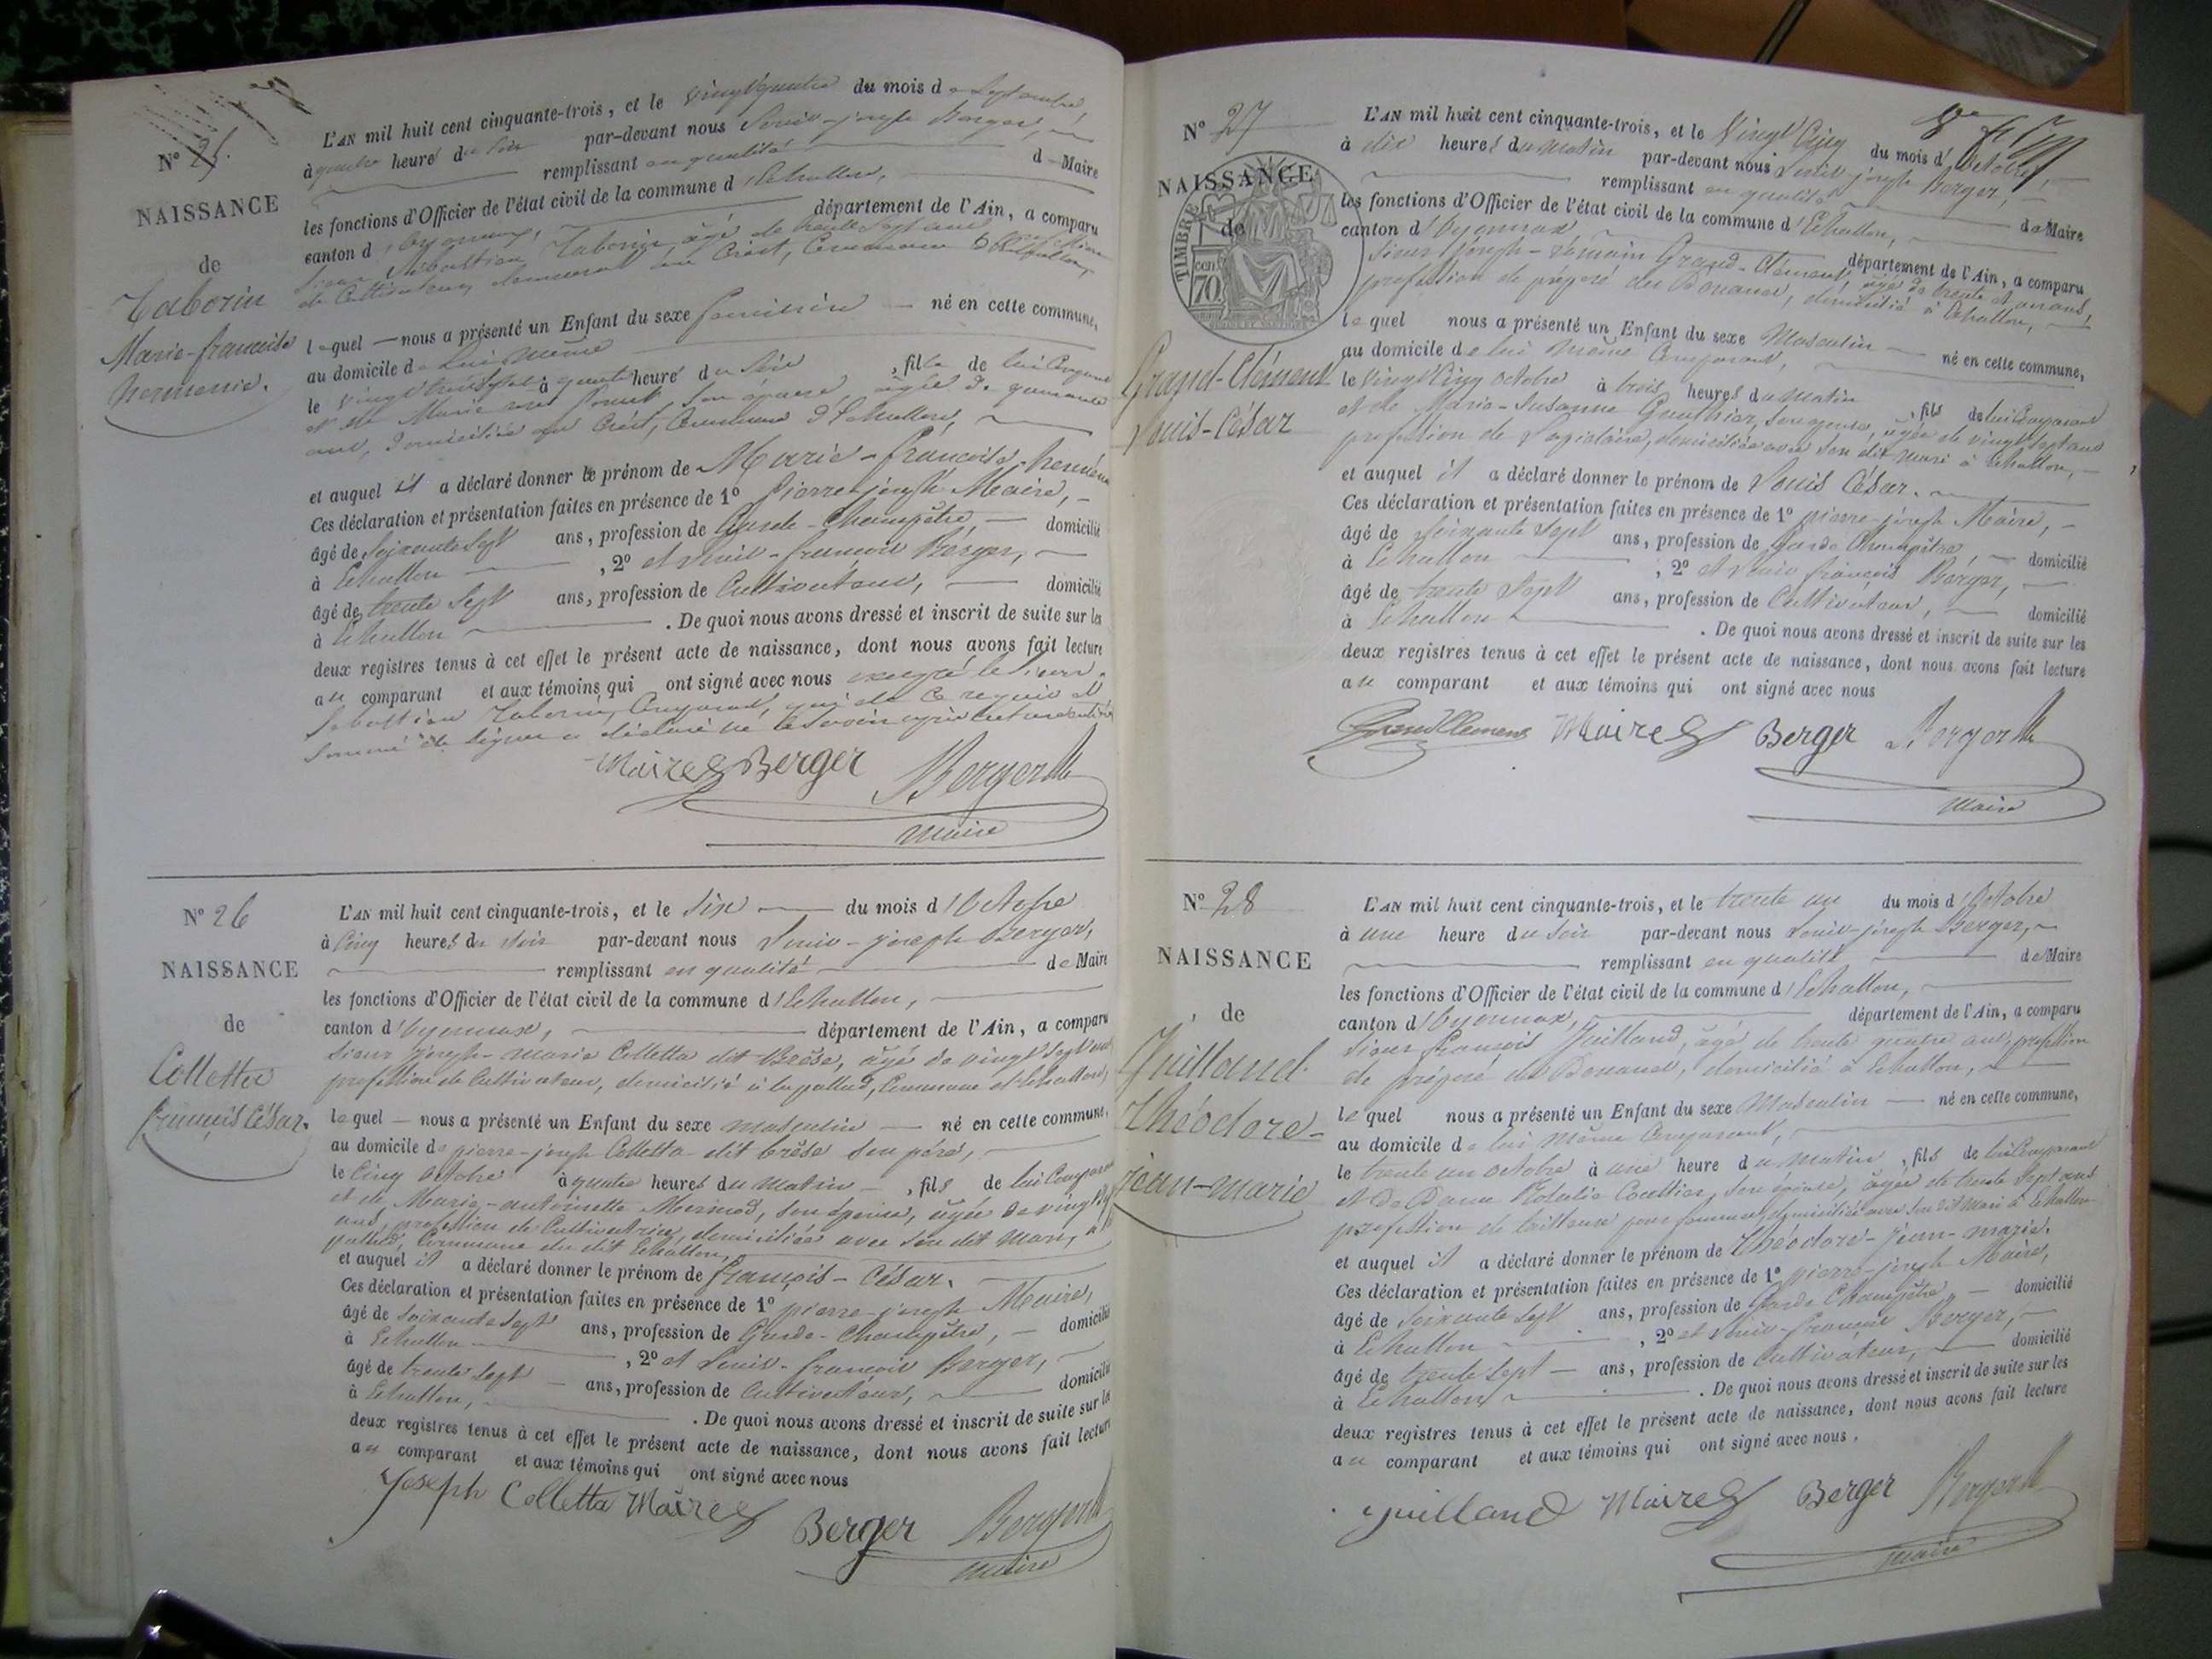 N° 25.
NAISSANCE
de
Taborin
Marie-françoise
herménie.
L'AN mil huit cent cinquante-trois, et le vingt quatre du mois de Septembre,
à quatre heures du soir par-devant nous Louis-joseph Berger,
remplissant en qualité de Maire
les fonctions d'Officier de l'état civil de la commune d'Echallon,
canton d'Oyonnax, département de l'Ain, a comparu
Sieur Sébastien Taborin, âgé de trente sept ans
de Cultivateur, demeurant au Crêt, Commune d'Echallon,
lequel nous a présenté un Enfant du sexe féminin né en cette commune,
au domicile de lui même
le vingt trois à quatre heures du soir, fille de lui Comparant
et de Marie son épouse, âgée de quarante
ans, domiciliée au Crêt, Commune d'Echallon,
et auquel il a déclaré donner le prénom de Marie-françoise-herménie
Ces déclaration et présentation faites en présence de 1° pierre-joseph Maire,
âgé de soixante sept ans, profession de Garde-Champêtre, domicilié
à Echallon, 2° et Louis-françois Berger,
âgé de trente sept ans, profession de Cultivateur, domicilié
à Echallon. De quoi nous avons dressé et inscrit de suite sur les
deux registres tenus à cet effet le présent acte de naissance, dont nous avons fait lecture
au comparant et aux témoins qui ont signé avec nous excepté le sieur
Sébastien Taborin, Comparant, qui de ce requis et
sommé de signer a déclaré ne le savoir
Maire Berger Berger
Maire
N° 26
NAISSANCE
de
Colletta
françois César.
L'AN mil huit cent cinquante-trois, et le six du mois d'Octobre
à cinq heures du soir par-devant nous Louis-joseph Berger,
remplissant en qualité de Maire
les fonctions d'Officier de l'état civil de la commune d'Echallon,
canton d'Oyonnax, département de l'Ain, a comparu
sieur joseph-marie Colletta dit Brèse, âgé de vingt sept ans
profession de Cultivateur, domicilié à la pallud, Commune d'Echallon,
lequel nous a présenté un Enfant du sexe masculin né en cette commune,
au domicile de pierre-joseph Colletta dit brèse son père,
le cinq octobre à quatre heures du matin, fils de lui Comparant
et de Marie-antoinette Mermod, son épouse, âgée de vingt
ans, profession de Cultivatrice, domiciliée avec son dit Mari, à la
pallud, Commune du dit Echallon,
et auquel il a déclaré donner le prénom de françois-César.
Ces déclaration et présentation faites en présence de 1° pierre-joseph Maire,
âgé de soixante sept ans, profession de Garde-Champêtre, domicilié
à Echallon, 2° et Louis-françois Berger,
âgé de trente sept ans, profession de Cultivateur, domicilié
à Echallon, . De quoi nous avons dressé et inscrit de suite sur les
deux registres tenus à cet effet le présent acte de naissance, dont nous avons fait lecture
au comparant et aux témoins qui ont signé avec nous
Joseph Colletta Maire Berger Berger
maire
N° 27
NAISSANCE
de
TIMBRE
cen. 70
Grand-Clément
Louis-César
L'AN mil huit cent cinquante-trois, et le Vingt Cinq du mois d'Octobre,
à dix heures du matin par-devant nous Louis-joseph Berger,
remplissant en qualité de Maire
les fonctions d'Officier de l'état civil de la commune d'Echallon,
canton d'Oyonnax département de l'Ain, a comparu
sieur Joseph-Romain Grand-Clément, âgé de trente et un ans,
profession de préposé des Douanes, domicilié à Echallon,
lequel nous a présenté un Enfant du sexe Masculin né en cette commune,
au domicile de lui même Comparant,
le vingt Cinq octobre à trois heures du matin, fils de lui Comparant
et de Marie-Susanne Gauthier, son épouse, âgée de vingt sept ans
profession de Lapidaire, domiciliée avec son dit mari à Echallon,
et auquel il a déclaré donner le prénom de Louis César.
Ces déclaration et présentation faites en présence de 1° pierre-joseph Maire,
âgé de soixante sept ans, profession de Garde Champêtre, domicilié
à Echallon, 2° et Louis françois Berger,
âgé de trente sept ans, profession de Cultivateur, domicilié
à Echallon. De quoi nous avons dressé et inscrit de suite sur les
deux registres tenus à cet effet le présent acte de naissance, dont nous avons fait lecture
au comparant et aux témoins qui ont signé avec nous
Grand Clement Maire Berger Berger
Maire
N° 28
NAISSANCE
de
Juilland
Théodore-
jean-marie
L'AN mil huit cent cinquante-trois, et le trente un du mois d'Octobre
à une heure du soir par-devant nous Louis-joseph Berger,
remplissant en qualité de Maire
les fonctions d'Officier de l'état civil de la commune d'Echallon,
canton d'Oyonnax, département de l'Ain, a comparu
sieur françois Juilland, âgé de trente quatre ans, profession
de préposé des Douanes, domicilié à Echallon,
lequel nous a présenté un Enfant du sexe Masculin né en cette commune,
au domicile de lui même Comparant,
le trente un octobre à une heure du matin, fils de lui Comparant
et de Dame Rotalie Couttier, son épouse, âgée de trente sept ans
profession de tailleuse pour femmes, domiciliée avec son dit Mari à Echallon
et auquel il a déclaré donner le prénom de Théodore-jean-marie.
Ces déclaration et présentation faites en présence de 1° pierre-joseph Maire,
âgé de soixante sept ans, profession de Garde Champêtre, domicilié
à Echallon, 2° et Louis-françois Berger,
âgé de trente sept ans, profession de Cultivateur, domicilié
à Echallon. De quoi nous avons dressé et inscrit de suite sur les
deux registres tenus à cet effet le présent acte de naissance, dont nous avons fait lecture
au comparant et aux témoins qui ont signé avec nous.
juilland Maire Berger Berger
maire